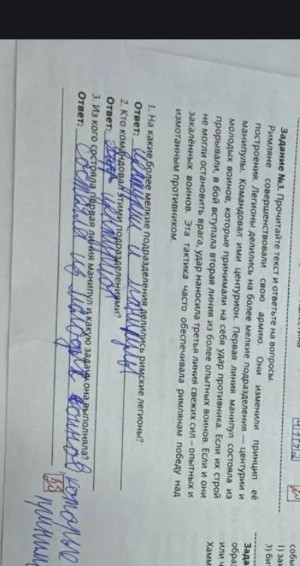 Задание №3. Прочитайте текст и ответьте на вопросы
Римляне совершенствовали свою армию. Они изменили принцип её
построения. Легионы делились на более мелкие подразделения — центурии и
манипулы. Командовал ими центурион. Первая линия манипул состояла из
молодых воинов, которые принимали на себя удар противника. Если их строй
прорывали, в бой вступала вторая линия из более опытных воинов. Если и они
не могли остановить врага, удар наносила третья линия свежих сил – опытных и
закалённых воинов. Эта тактика часто обеспечивала римлянам победу над
измотанным противником.
1. На какие более мелкие подразделения делились римские легионы?
Ответ: центурии и манипулы
2. Кто командовал этими подразделениями?
Ответ: центурион
3. Из кого состояла первая линия манипул и какую задачу она выполняла?
Ответ: состояла из молодых воинов которые
собы
1) за
3) би
Зада
обра
или ч
Хамм